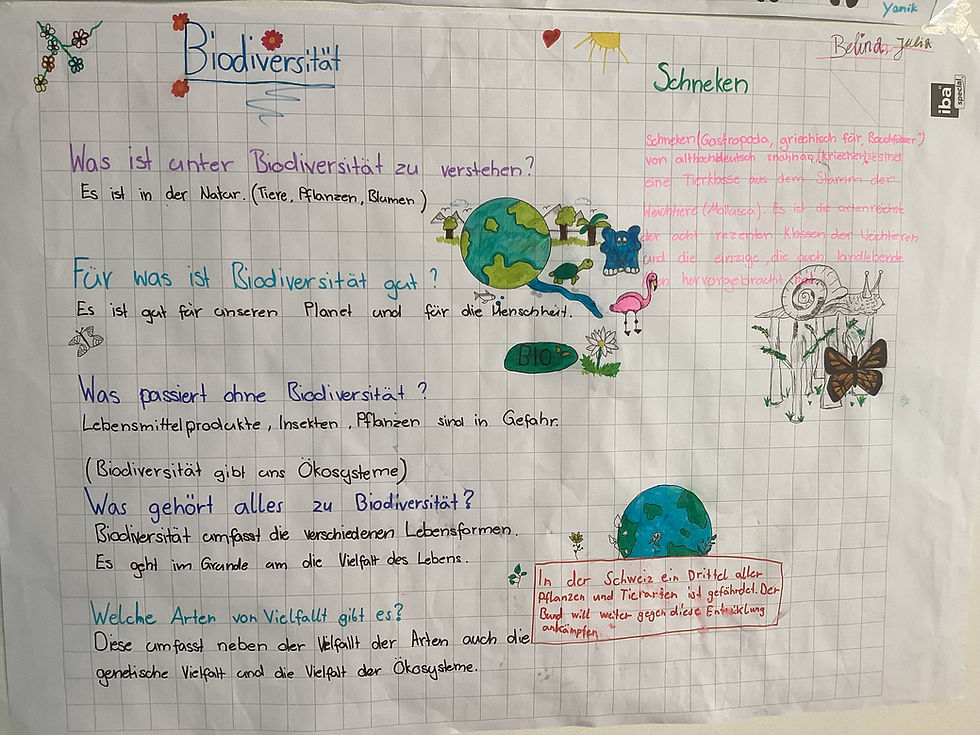 Yanik
Biodiversität
Belina, Julia
Schneken
iba
special
Was ist unter Biodiversität zu verstehen?
Es ist in der Natur. (Tiere, Pflanzen, Blumen)
Schneken (Gastropoda, griechisch für
von althochdeutsch
eine Tierklasse aus dem Stamm der
Weichtiere (Mollusca). Es ist die artenreichste
der acht rezenten Klassen der Weichtieren
und die einzige, die auch landlebende
hervorgebracht hat.
Für was ist Biodiversität gut?
Es ist gut für unseren Planet und für die Menschheit.
BIO
Was passiert ohne Biodiversität?
Lebensmittelprodukte, Insekten, Pflanzen sind in Gefahr.
(Biodiversität gibt uns Ökosysteme)
Was gehört alles zu Biodiversität?
Biodiversität umfasst die verschiedenen Lebensformen.
Es geht im Grunde um die Vielfalt des Lebens.
Welche Arten von Vielfallt gibt es?
Diese umfasst neben der Vielfallt der Arten auch die
genetische Vielfalt und die Vielfalt der Ökosysteme.
In der Schweiz ein Drittel aller
Pflanzen und Tierarten ist gefährdet. Der
Bund will weiter gegen diese Entwiklung
ankämpfen.